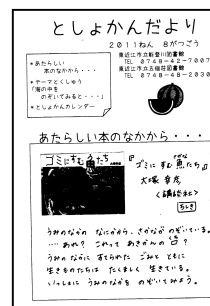 としょかんだより
2011ねん 8がつごう
東近江市立能登川図書館
TEL 0748-42-7007
東近江市立五個荘図書館
TEL 0748-48-2030
*あたらしい
本のなかから・・・
*テーマとくしゅう
「海の中を
のぞいてみると・・・」
*としょかんカレンダー
あたらしい本のなかから・・・
ゴミにすむ魚たち
『ゴミにすむ魚たち』
大塚幸彦
<講談社>
ちしき
うみのなかの なにかから、さかなが のぞいている。
・・・あれ? これって あきかんの 口?
うみの なかに すてられた ごみと ともに
生きものたちは たくましく 生きている。
いっしょに うみのなかを のぞいてみよう。